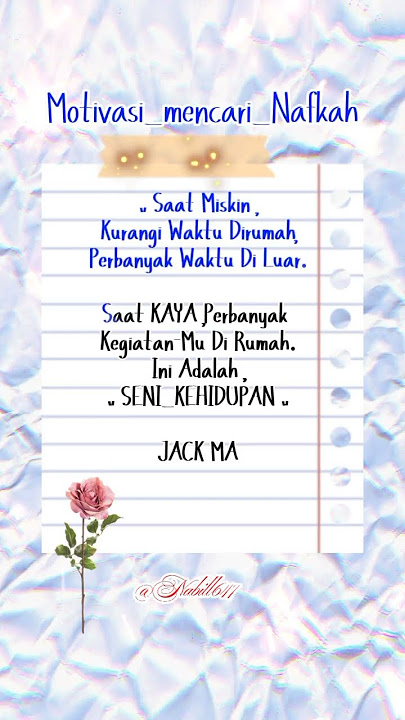 Motivasi_mencari_Nafkah
„ Saat Miskin,
Kurangi Waktu Dirumah,
Perbanyak Waktu Di Luar.
Saat KAYA,Perbanyak
Kegiatan-Mu Di Rumah.
Ini Adalah,
„ SENI_KEHIDUPAN „
JACK MA
@Nabill611